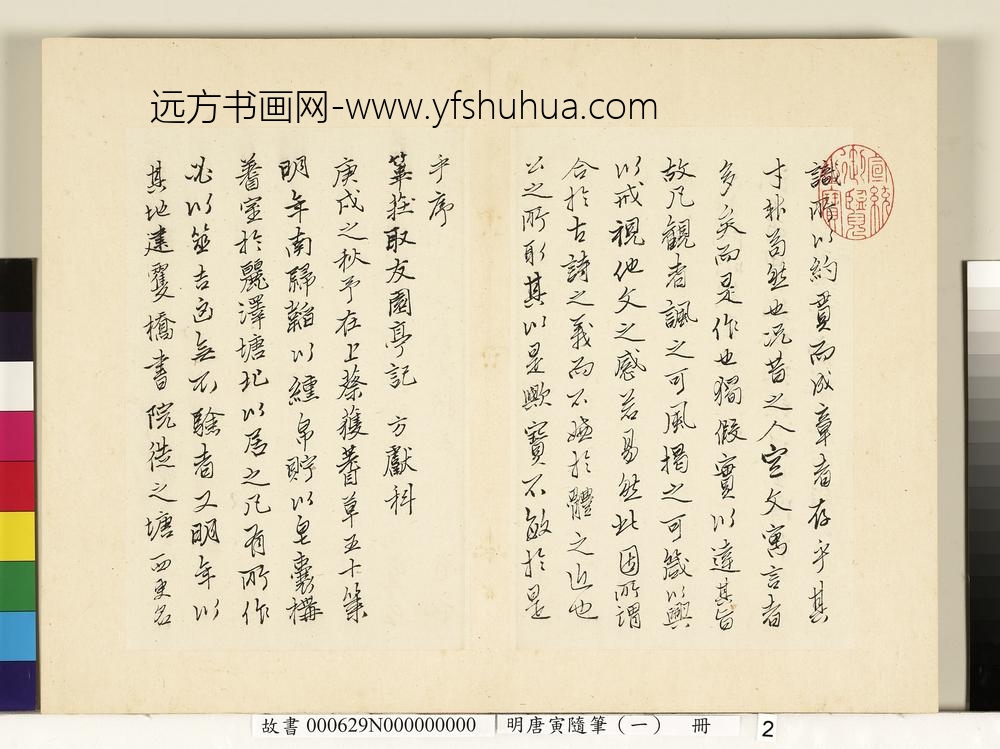 远方书画网-www.yfshuhua.com
識所以約貫而成章者存乎其
才耳葢然也况昔之人空文寓言者
多矣而是作也獨假實以達其旨
故凡觀者諷之可風揭之可箴以興
以戒視他文之感若易然此固所謂
合於古詩之義而不嫌於體之近也
公之所取其以是歟寶不敏於是
乎序
取友園亭記 方獻科
庚戌之秋予在上蔡獲蓍草五十策
明年南歸韜以纁帛貯以皂囊構
蓍室於麗澤塘北以居之凡有所作
必以筮吉凶無不驗者又明年以
其地建雙橋書院徙之塘西更名
宣統御覽之寶
故書 000629N000000000 明唐寅隨筆（一） 冊 2